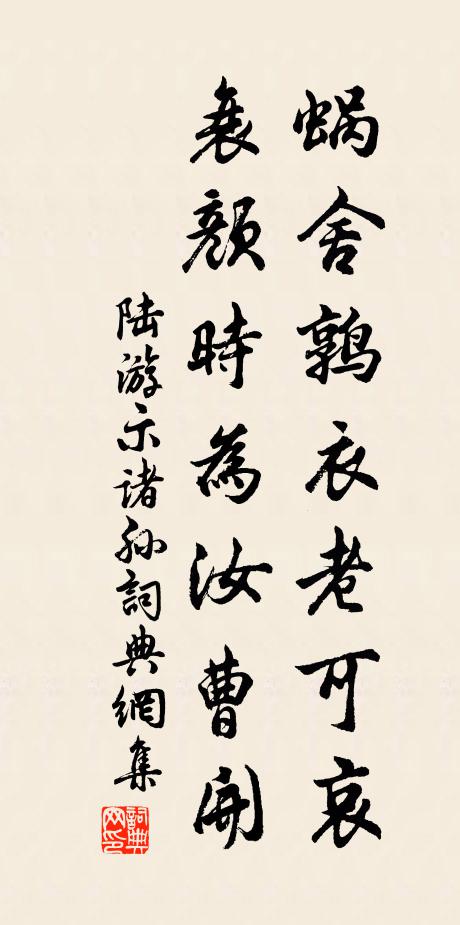 蝸舍鶉衣老可哀
衰顏時為汝曹開
陆游示诸孙詞典網集
詞典網印